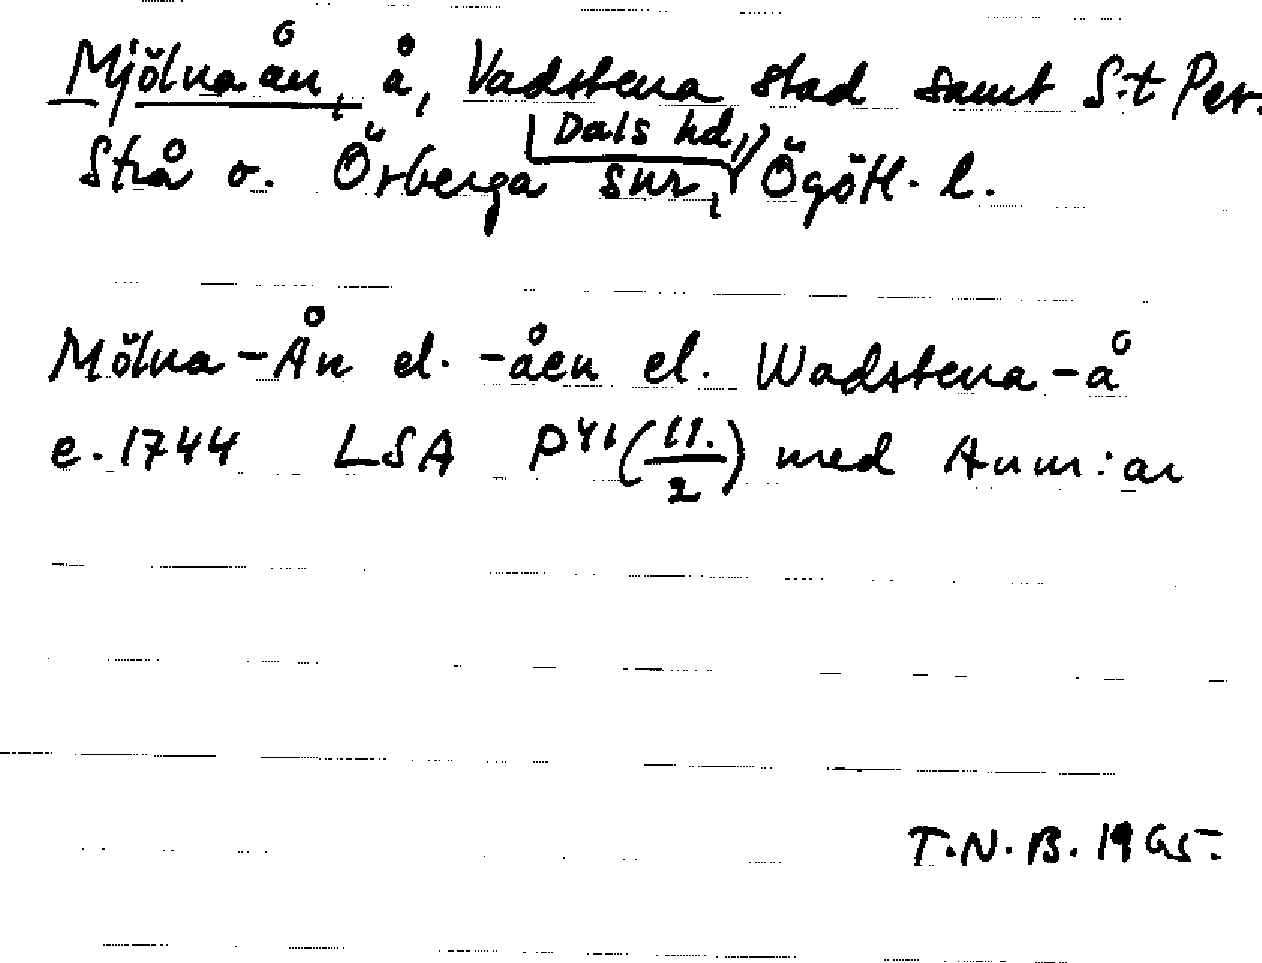 Mjölnaån, å, Vadstena stad samt S:t Per.
Strå o. Örberga snr, Dals hd, Ögötl. l.
Mölna-Ån el. -åen el. Wadstena-å
e. 1744 LSA P41 (11./2) med Anm:ar
T.N.B. 1965.